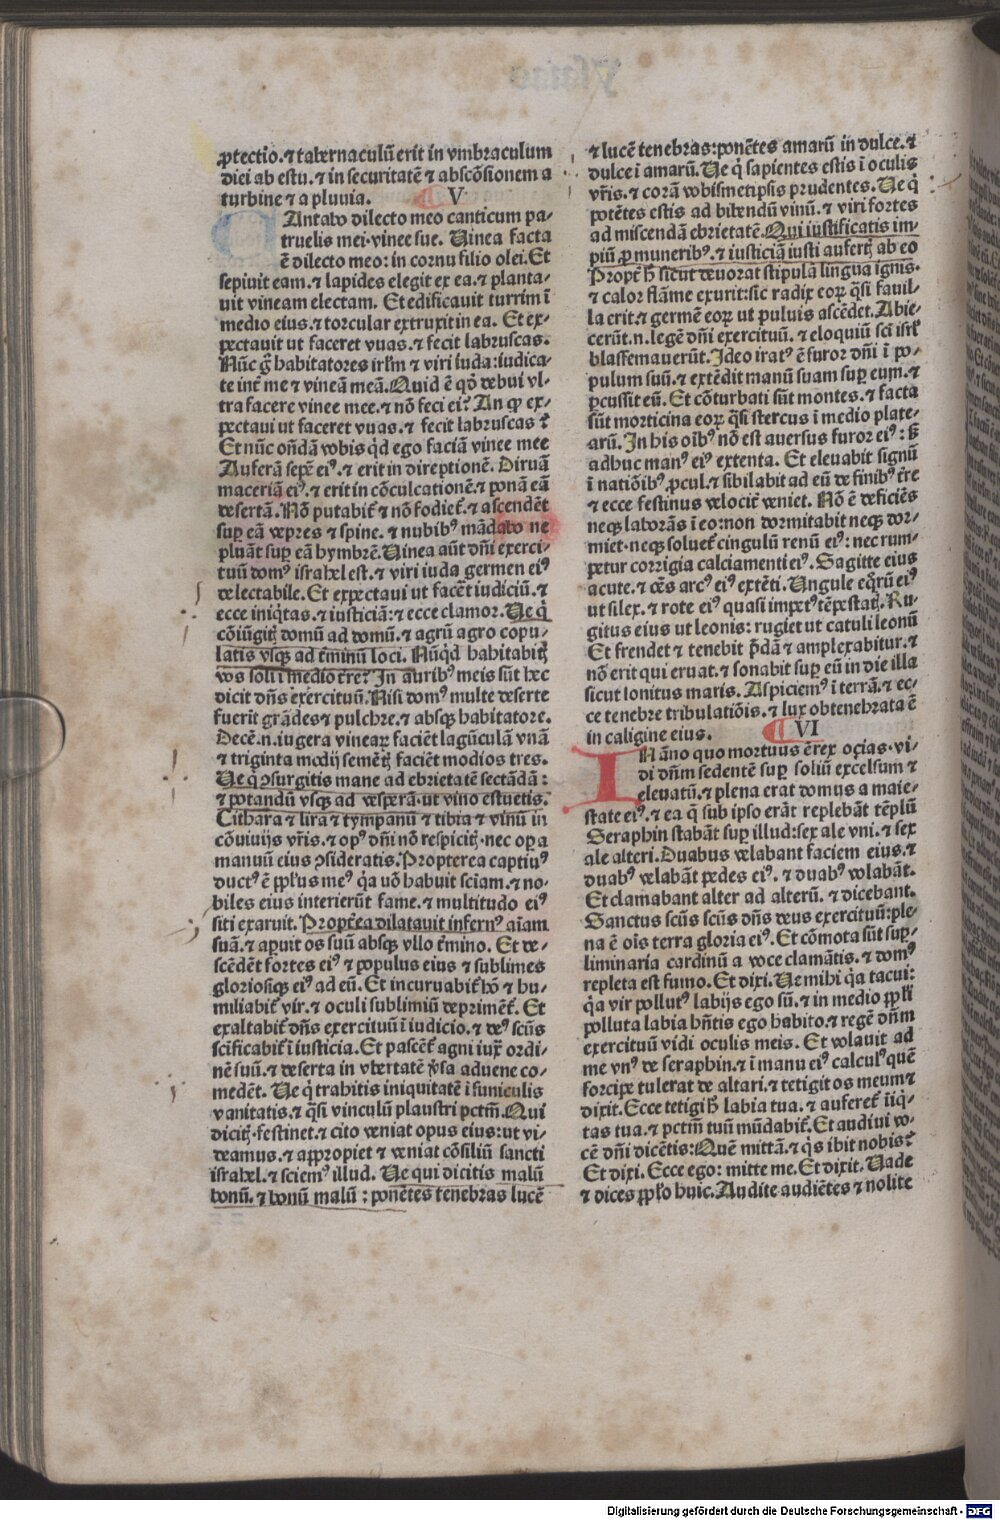 ꝓtectio. ⁊ tabernaculū erit in vmbraculum
diei ab estu. ⁊ in securitatē ⁊ abscōsionem a
turbine ⁊ a pluuia. V
CAntabo dilecto meo canticum pa⸗
truelis mei vinee sue. Uinea facta
ē dilecto meo: in cornu filio olei. Et
sepiuit eam. ⁊ lapides elegit ex ea. ⁊ planta⸗
uit vineam electam. Et edificauit turrim ī
medio eius. ⁊ torcular extruxit in ea. Et ex⸗
pectauit ut faceret vuas. ⁊ fecit labruscas.
Nūc g̊ habitatores irlm̄ ⁊ viri iuda: iudica⸗
te int̄ me ⁊ vineā meā. Quid ē qd̄ debui vl⸗
tra facere vinee mee. ⁊ nō feci ei? An ꝙ ex⸗
pectaui ut faceret vuas. ⁊ fecit labruscas?
Et nūc ōndā vobis qd̄ ego faciā vinee mee
Auferā sepē eiꝰ. ⁊ erit in direptionē. Diruā
maceriā eiꝰ. ⁊ erit in cōculcationē. ⁊ ponā eā
desertā. Nō putabit̄ ⁊ nō fodiet̄. ⁊ ascendēt
suꝑ eā vepres ⁊ spine. ⁊ nubibꝰ mādabo ne
pluāt suꝑ eā hymbrē. Uinea aūt dn̄i exerci⸗
tuū domꝰ israhel est. ⁊ viri iuda germen eiꝰ
delectabile. Et expectaui ut facēt iudiciū. ⁊
ecce iniqͥtas. ⁊ iusticiā: ⁊ ecce clamor. Ue qͥ
cōiūgitꝭ domū ad domū. ⁊ agrū agro copu⸗
latis vsqꝫ ad t̄minū loci. Nūqͥd habitabitꝭ
vos soli ī medio t̄re? In auribꝰ meis sūt hec
dicit dn̄s exercituū. Nisi domꝰ multe deserte
fuerit grādes ⁊ pulchre. ⁊ absqꝫ habitatore.
Decē.n. iugera vineaꝝ faciēt lagūculā vnā
⁊ triginta modij semētꝭ faciēt modios tres.
Ue qͥ ꝯsurgitis mane ad ebrietatē sectādā:
⁊ potandū vsqꝫ ad vesperā. ut vino estuetis.
Cithara ⁊ lira ⁊ tympanū ⁊ tibia ⁊ vinū in
cōuiuijs vr̄is. ⁊ opꝰ dn̄i nō respicitꝭ. nec oꝑa
manuū eius ꝯsideratis. Propterea captiuꝰ
ductꝰ ē pp̄lus meꝰ qͣ nō habuit sciam. ⁊ no⸗
biles eius interierūt fame. ⁊ multitudo eiꝰ
siti exaruit. Propt̄ea dilatauit infernꝰ aīam
suā. ⁊ aꝑuit os suū absqꝫ vllo t̄mino. Et de⸗
scēdēt fortes eiꝰ ⁊ populus eius ⁊ sublimes
gloriosiqꝫ eiꝰ ad eū. Et incuruabit̄ hō ⁊ hu⸗
miliabit̄ vir. ⁊ oculi sublimiū deprimēt̄. Et
exaltabit̄ dn̄s exercituū ī iudicio. ⁊ deꝰ scūs
scīficabit̄ ī iusticia. Et pascēt̄ agni iux̄ ordi⸗
nē suū. ⁊ deserta in vbertatē v̄sa aduene co⸗
medēt. Ue qͥ trahitis iniquitatē ī funiculis
vanitatis. ⁊ qͣsi vinculū plaustri pctm̄. Qui
dicitꝭ. festinet. ⁊ cito veniat opus eius: ut vi⸗
deamus. ⁊ appropiet ⁊ veniat cōsiliū sancti
israhel. ⁊ sciemꝰ illud. Ue qui dicitis malū
bonū. ⁊ bonū malū: ponētes tenebras lucē
⁊ lucē tenebras: ponētes amarū in dulce. ⁊
dulce ī amarū. Ue qͥ sapientes estis ī oculis
vr̄is. ⁊ corā vobismetipsis prudentes. Ue qͥ
potētes estis ad bibendū vinū. ⁊ viri fortes
ad miscendā ebrietatē. Qui iustificatis im⸗
piū ꝓ muneribꝰ. ⁊ iusticiā iusti aufertꝭ ab eo
Propt̄ h̄ sicut deuorat stipulā lingua ignis.
⁊ calor flāme exurit: sic radix eoꝝ qͣsi fauil⸗
la erit. ⁊ germē eoꝝ ut puluis ascēdet. Abie⸗
cerūt.n. legē dn̄i exercituū. ⁊ eloquiū sc̄i isrl̄
blasfemauerūt. Ideo iratꝰ ē furor dn̄i ī po⸗
pulum suū. ⁊ extēdit manū suam suꝑ eum. ⁊
ꝑcussit eū. Et cōturbati sūt montes. ⁊ facta
sūt morticina eoꝝ qͣsi stercus ī medio plate⸗
arū. In his oībꝰ nō est auersus furor eiꝰ: sꝫ
adhuc manꝰ eiꝰ extenta. Et eleuabit signū
ī natiōibꝰ ꝓcul. ⁊ sibilabit ad eū de finibꝰ t̄re
⁊ ecce festinus velocit̄ veniet. Nō ē deficiēs
neqꝫ laborās ī eo: non dormitabit neqꝫ dor⸗
miet. neqꝫ soluet̄ cingulū renū eiꝰ: nec rum⸗
petur corrigia calciamenti eiꝰ. Sagitte eius
acute. ⁊ oēs arcꝰ eiꝰ extēti. Ungule eqͦrū eiꝰ
ut silex. ⁊ rote eiꝰ quasi impetꝰ tēpestatꝭ. Ru⸗
gitus eius ut leonis: rugiet ut catuli leonū
Et frendet ⁊ tenebit p̄dā ⁊ amplexabitur. ⁊
nō erit qui eruat. ⁊ sonabit suꝑ eū in die illa
sicut sonitus maris. Aspiciemꝰ ī terrā. ⁊ ec⸗
ce tenebre tribulatiōis. ⁊ lux obtenebrata ē
in caligine eius. VI
IN āno quo mortuus ē rex oçias. vi⸗
di dn̄m sedentē suꝑ soliū excelsum ⁊
eleuatū. ⁊ plena erat domus a maie⸗
state eiꝰ. ⁊ ea qͣ sub ipso erāt replebāt tēplū
Seraphin stabāt suꝑ illud: sex ale vni. ⁊ sex
ale alteri. Duabus velabant faciem eius. ⁊
duabꝰ velabāt pedes eiꝰ. ⁊ duabꝰ volabāt.
Et clamabant alter ad alterū. ⁊ dicebant.
Sanctus scūs scūs dn̄s deus exercituū: ple⸗
na ē oīs terra gloria eiꝰ. Et cōmota sūt suꝑ⸗
liminaria cardinū a voce clamātis. ⁊ domꝰ
repleta est fumo. Et dixi. Ue mihi qͣ tacui:
qͣ vir pollutꝰ labijs ego sū. ⁊ in medio pp̄li
polluta labia hn̄tis ego habito. ⁊ regē dn̄m
exercituū vidi oculis meis. Et volauit ad
me vnꝰ de seraphin. ⁊ ī manu eiꝰ calculꝰ quē
forcipe tulerat de altari. ⁊ tetigit os meum ⁊
dixit. Ecce tetigi h̄ labia tua. ⁊ auferet̄ īiqͥ⸗
tas tua. ⁊ pctm̄ tuū mūdabit̄. Et audiui vo⸗
cē dn̄i dicētis: Quē mittā. ⁊ qͥs ibit nobis?
Et dixi. Ecce ego: mitte me. Et dixit. Uade
⁊ dices pp̄lo huic. Audite audiētes ⁊ nolite
Digitalisierung gefördert durch die Deutsche Forschungsgemeinschaft - DFG